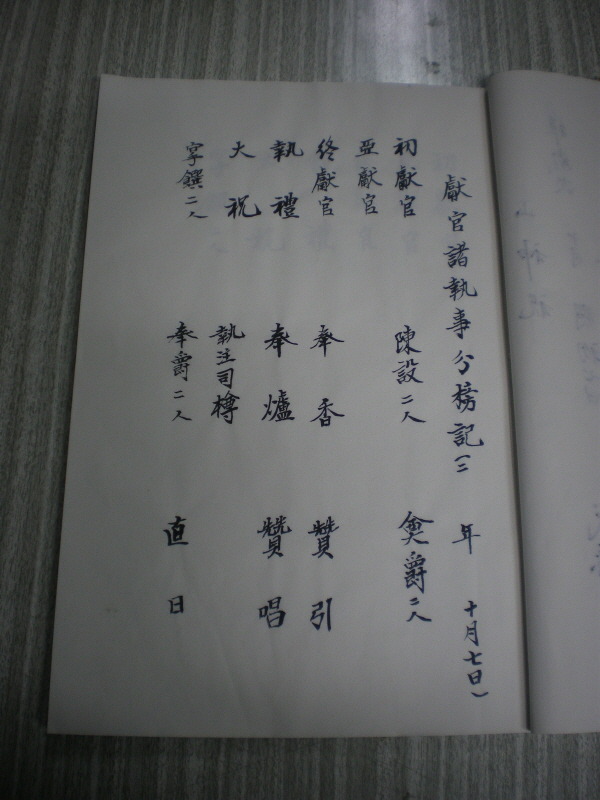 獻官諸執事分榜記(二 年 十月七日)
初獻官 陳設二人 奠爵二人
亞獻官
終獻官 奉香 贊引
執禮 奉爐 贊唱
大祝 執注司樽
宰饌二人 奉爵二人 直日